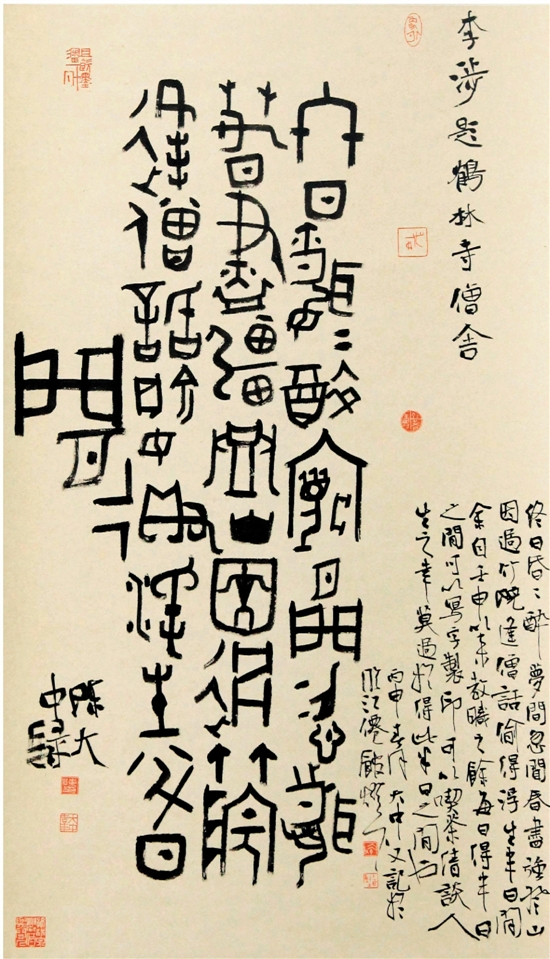 李涉題鶴林寺僧舍
終日昏〻醉夢間忽聞
春盡強登山因過竹院
逢僧話偷得浮生半日
閒
陳大
中
終日昏〻醉夢間忽聞春盡強登山
因過竹院逢僧話偷得浮生半日閒
余自壬申以來教疇之餘每日得半日
之閒可以寫字製印可以喫茶清談人
生之幸莫過於得此半日之閒也
丙申春月大中又記於
臨江僊館燈下